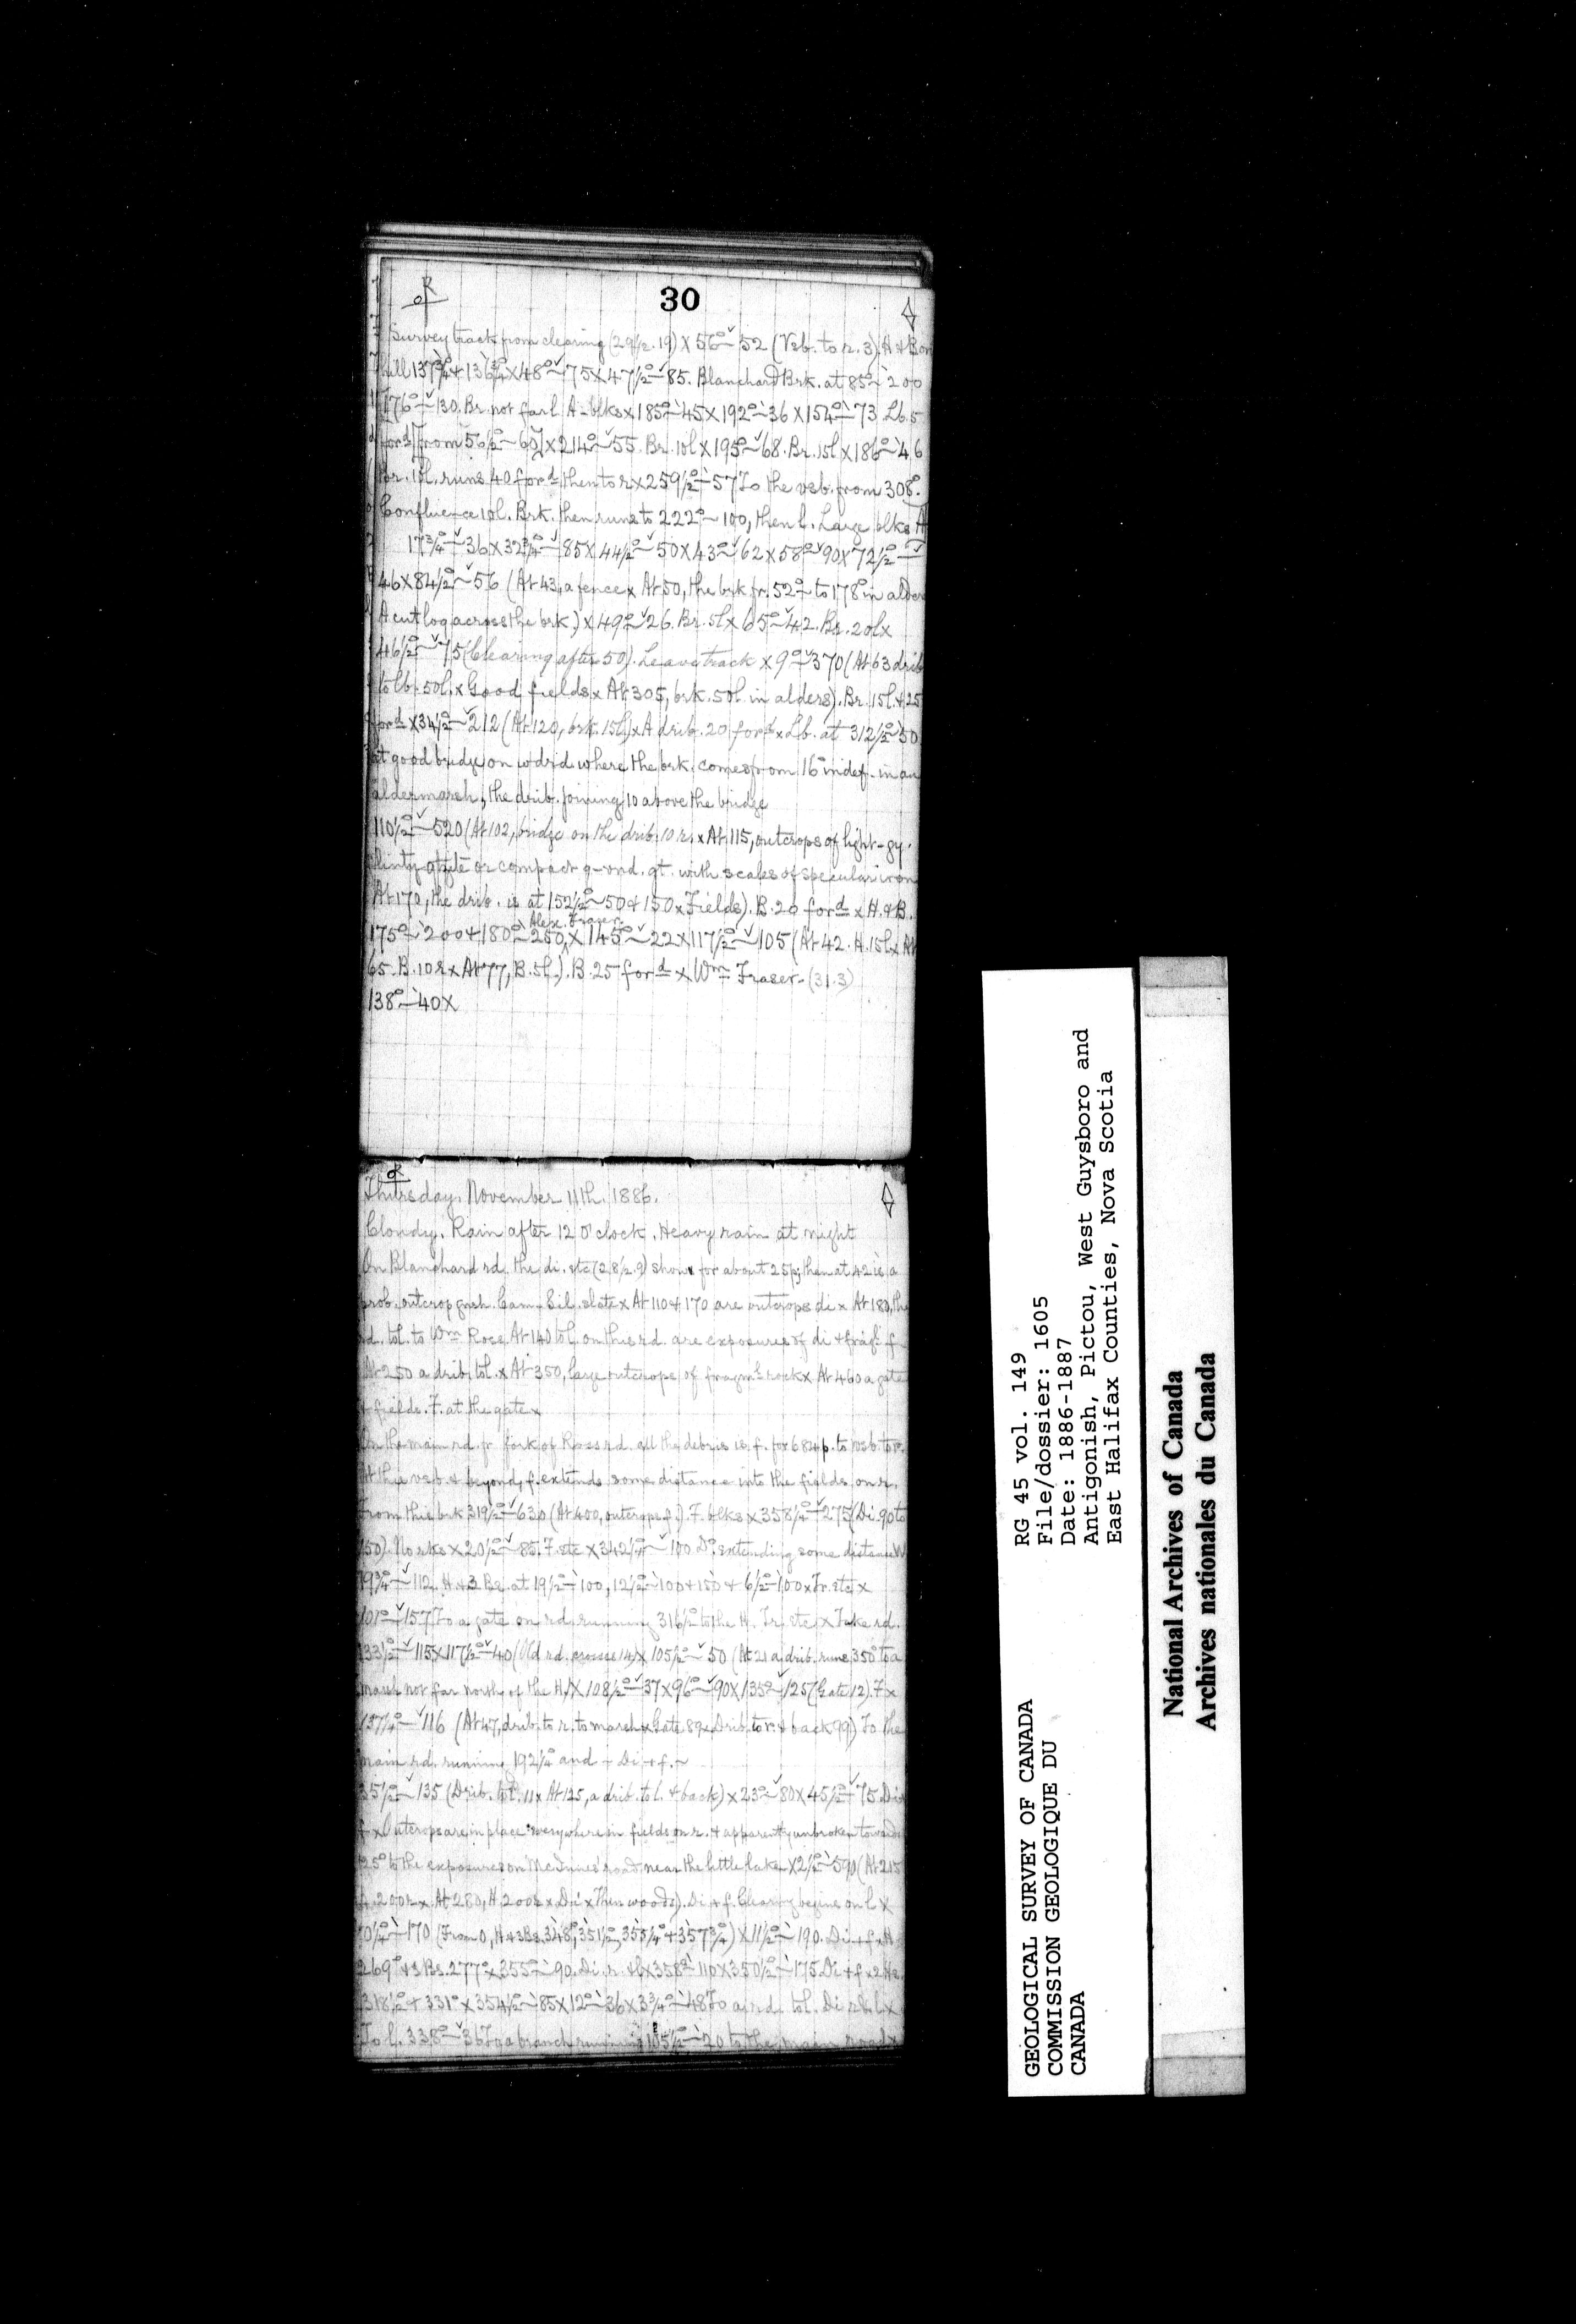 30
Survey track from clearing (29½.19) x 56° 52 (Vsb. to r. 3). H & B on
hill 137¾ & 136¾ x 48° 75 x 47½° 85. Blanchard Brk. at 85° 200
176° 130. Br. not far l. A-blks x 185° 45 x 192° 36 x 154° 73 Lb. 5
for'd [from 56½° 60] x 214° 55. Br. 10l x 195° 68. Br. 15l x 186° 46
Br. 10l. runs 40 for'd, then to r x 259½° 57 To the vsb. from 308°.
Confluence 10l. Brk. then runs to 222° 100, then l. Large blks A
17¾° 36 x 32¾° 85 x 44½° 50 x 43° 62 x 58° 90 x 72½°
46 x 84½° 56 (At 43, a fence x At 50, the brk fr. 52° to 178° in alders
A cut log across the brk.) x 49° 26. Br. 5l x 65° 42. Br. 20l x
46½° 75 (Clearing after 50). Leave track x 9° 370 (At 63 drib
to lb. 50l. x Good fields x At 305, brk. 50l. in alders). Br. 15l. & 25
for'd x 34½° 212 (At 120, brk. 15l.) x A drib. 20 for'd x Lb. at 312½° 50
at good bridge on wdrd. where the brk. comes from 16° indef. in an
alder marsh, the drib. joining 10 above the bridge
110½° 520 (At 102, bridge on the drib. 10 r. x At 115, outcrops of light-gy.
flinty qtzite or compact q-vnd. qt. with scales of specular iron
At 170, the drib. is at 152½° 50 & 150 x Fields). B. 20 for'd x H. & B.
Alex. Fraser.
175° 200 & 180° 250, x 145° 22 x 117½° 105 (At 42. H. 15l x At
65. B. 10 r x At 77, B. 5l.). B. 25 for'd x Wm Fraser. (31.3)
138° 40 x
Thursday. November 11th. 1886.
Cloudy. Rain after 12 o'clock. Heavy rain at night
On Blanchard rd. the di. etc (28½.9) shows for about 25p; then at 42 is a
prob. outcrop gnsh. Cam.-Sil. slate x At 110 & 170 are outcrops di x At 180, the
rd. to l. to Wm Ross. At 140 to l. on this rd. are exposures of di & frag'l f
At 250 a drib. to l. x At 350, large outcrops of fragm'l rock x At 460 a gate
& fields. F. at the gate x
On the main rd. fr. fork of Ross rd. all the debris is f. for 684p. to vsb. to r.
At this vsb. & beyond, f. extends some distance into the fields on r.
From this brk 319½° 630 (At 400, outcrops f.). F. blks x 358¼° 275 (Di. 90 to
150). No rks x 20½° 85. F. etc x 342½° 100. Do. extending some distance W
19¾° 112. H. & 3 Bs. at 19½° 100, 12½° 100 & 150 & 6½° 100 x Fr. etc x
101° 157 To a gate on rd. running 316½° to the H. Fr. etc x Take rd.
133½° 115 x 117½° 40 (Old rd. crosses 14) x 105½° 50 (At 21 a drib. runs 350° to a
marsh not far north of the H.) x 108½° 37 x 96° 90 x 135° 125 (Gate 12). F x
137¼° 116 (At 47, drib. to r. to marsh x Gate 89 x Drib. to r. & back 99) To the
main rd. running 192¼° and - Di & f.~
351½° 135 (Drib. to l. 11 x At 125, a drib. to l. & back) x 23° 80 x 45½° 75 Di &
f x Outcrops are in place everywhere in fields on r. & apparently unbroken towards
25° to the exposures on McInnes' road near the little lake x 2½° 590 (At 215
H. 200 r x At 280, H. 200 r x Di x Then woods). Di & f. Clearing begins on l x
0¼° 170 (From 0, H & 3 Bs. 348°, 351½°, 355¼° & 357¾°) x 11½° 190. Di & f x H
269° & 3 Bs. 277° x 355° 90. Di. r. & l x 358° 110 x 350½° 175 Di & f x 2 Hs.
318½° & 331° x 354½° 85 x 12° 36 x 3¾° 48 To a rd. to l. Di r & l x
To l. 338° 36 To a branch running 105½° 20 to the main road x
RG 45 vol. 149
File/dossier: 1605
Date: 1886-1887
Antigonish, Pictou, West Guysboro and
East Halifax Counties, Nova Scotia
GEOLOGICAL SURVEY OF CANADA
COMMISSION GEOLOGIQUE DU
CANADA
National Archives of Canada
Archives nationales du Canada